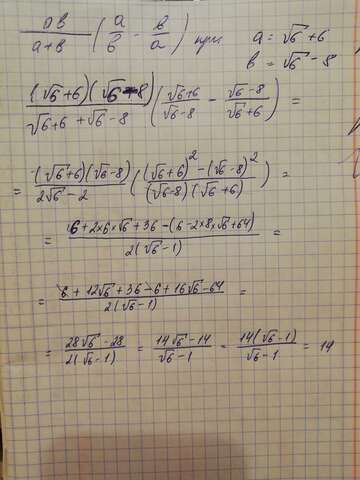 ав/(а+в) (а/б - в/а) при a = √6 + 6
в = √6 - 8
(√6+6)(√6-8)/(√6+6+√6-8) ((√6+6)/(√6-8) - (√6-8)/(√6+6)) =
= (√6+6)(√6-8)/(2√6-2) (((√6+6)² - (√6-8)²)/((√6-8)(√6+6))) =
= (6+2×6×√6+36-(6-2×8×√6+64))/(2(√6-1)) =
= (6+12√6+36-6+16√6-64)/(2(√6-1)) =
= (28√6-28)/(2(√6-1)) = (14√6-14)/(√6-1) = 14(√6-1)/(√6-1) = 14